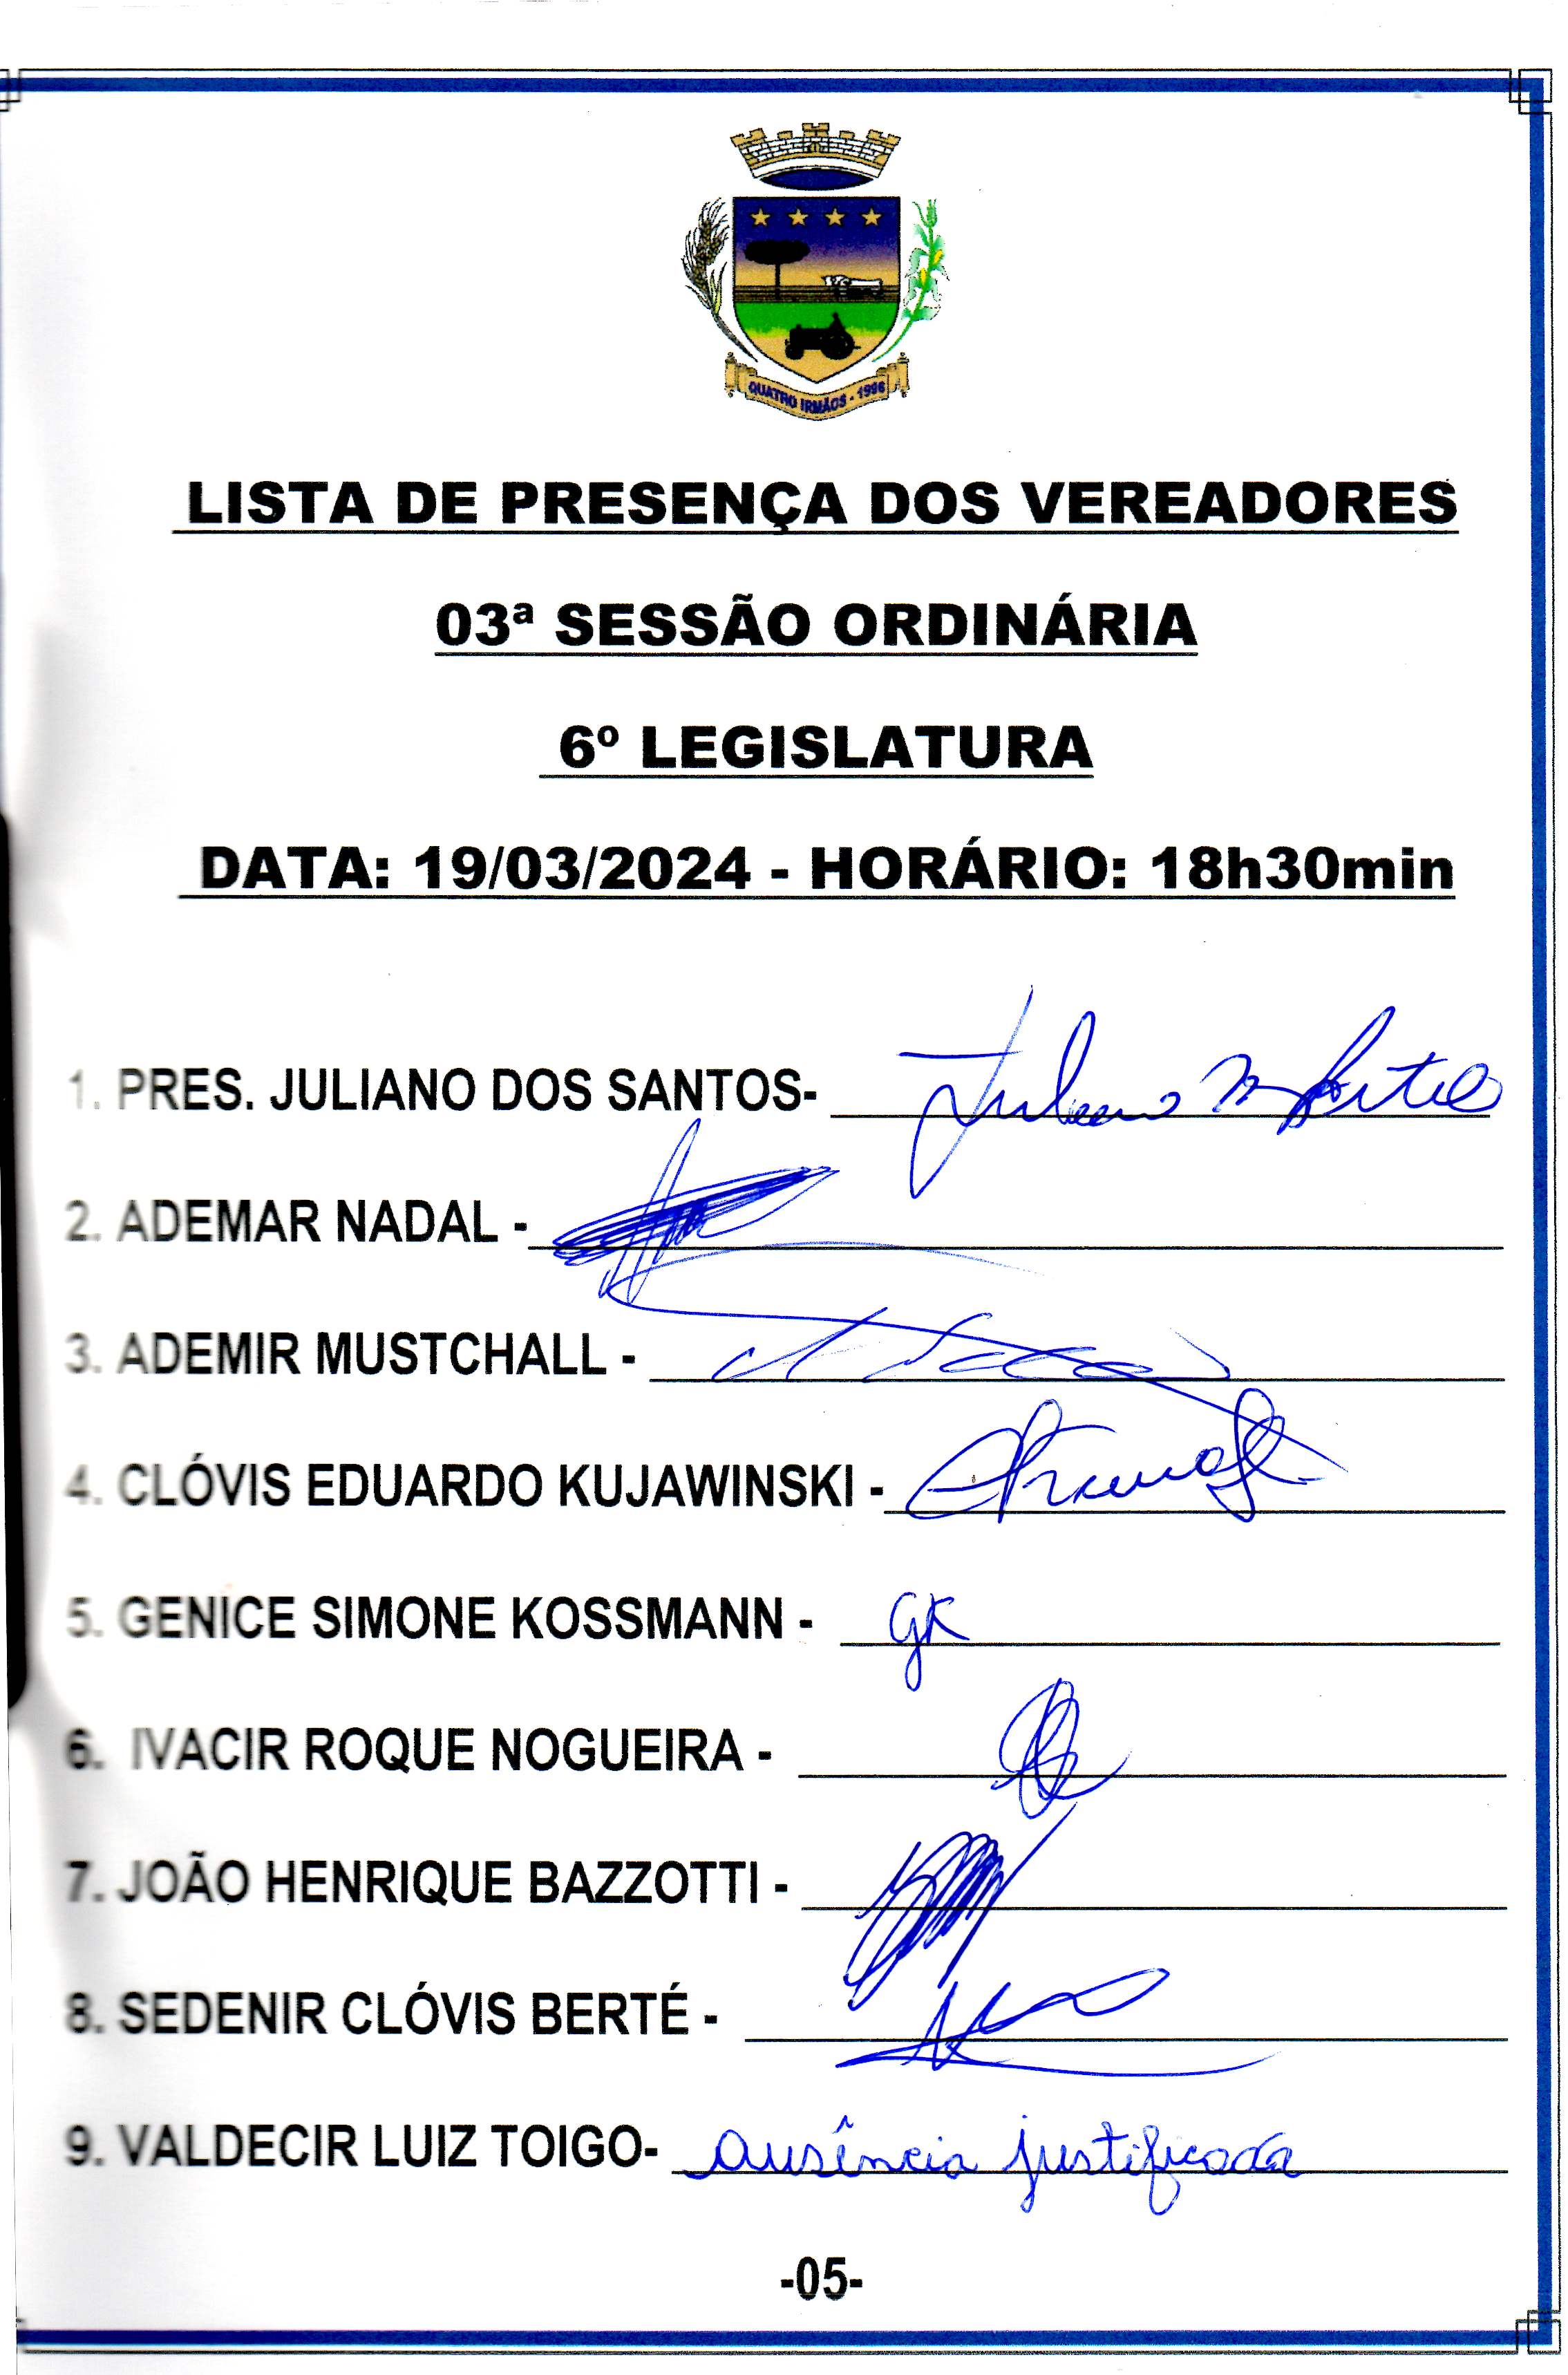 QUATRO IRMÃOS - 1996
LISTA DE PRESENÇA DOS VEREADORES
03ª SESSÃO ORDINÁRIA
6º LEGISLATURA
DATA: 19/03/2024 - HORÁRIO: 18h30min
1. PRES. JULIANO DOS SANTOS- Juliano
2. ADEMAR NADAL -
3. ADEMIR MUSTCHALL -
4. CLÓVIS EDUARDO KUJAWINSKI -
5. GENICE SIMONE KOSSMANN - GK
6. IVACIR ROQUE NOGUEIRA -
7. JOÃO HENRIQUE BAZZOTTI -
8. SEDENIR CLÓVIS BERTÉ -
9. VALDECIR LUIZ TOIGO- ausência justificada
-05-